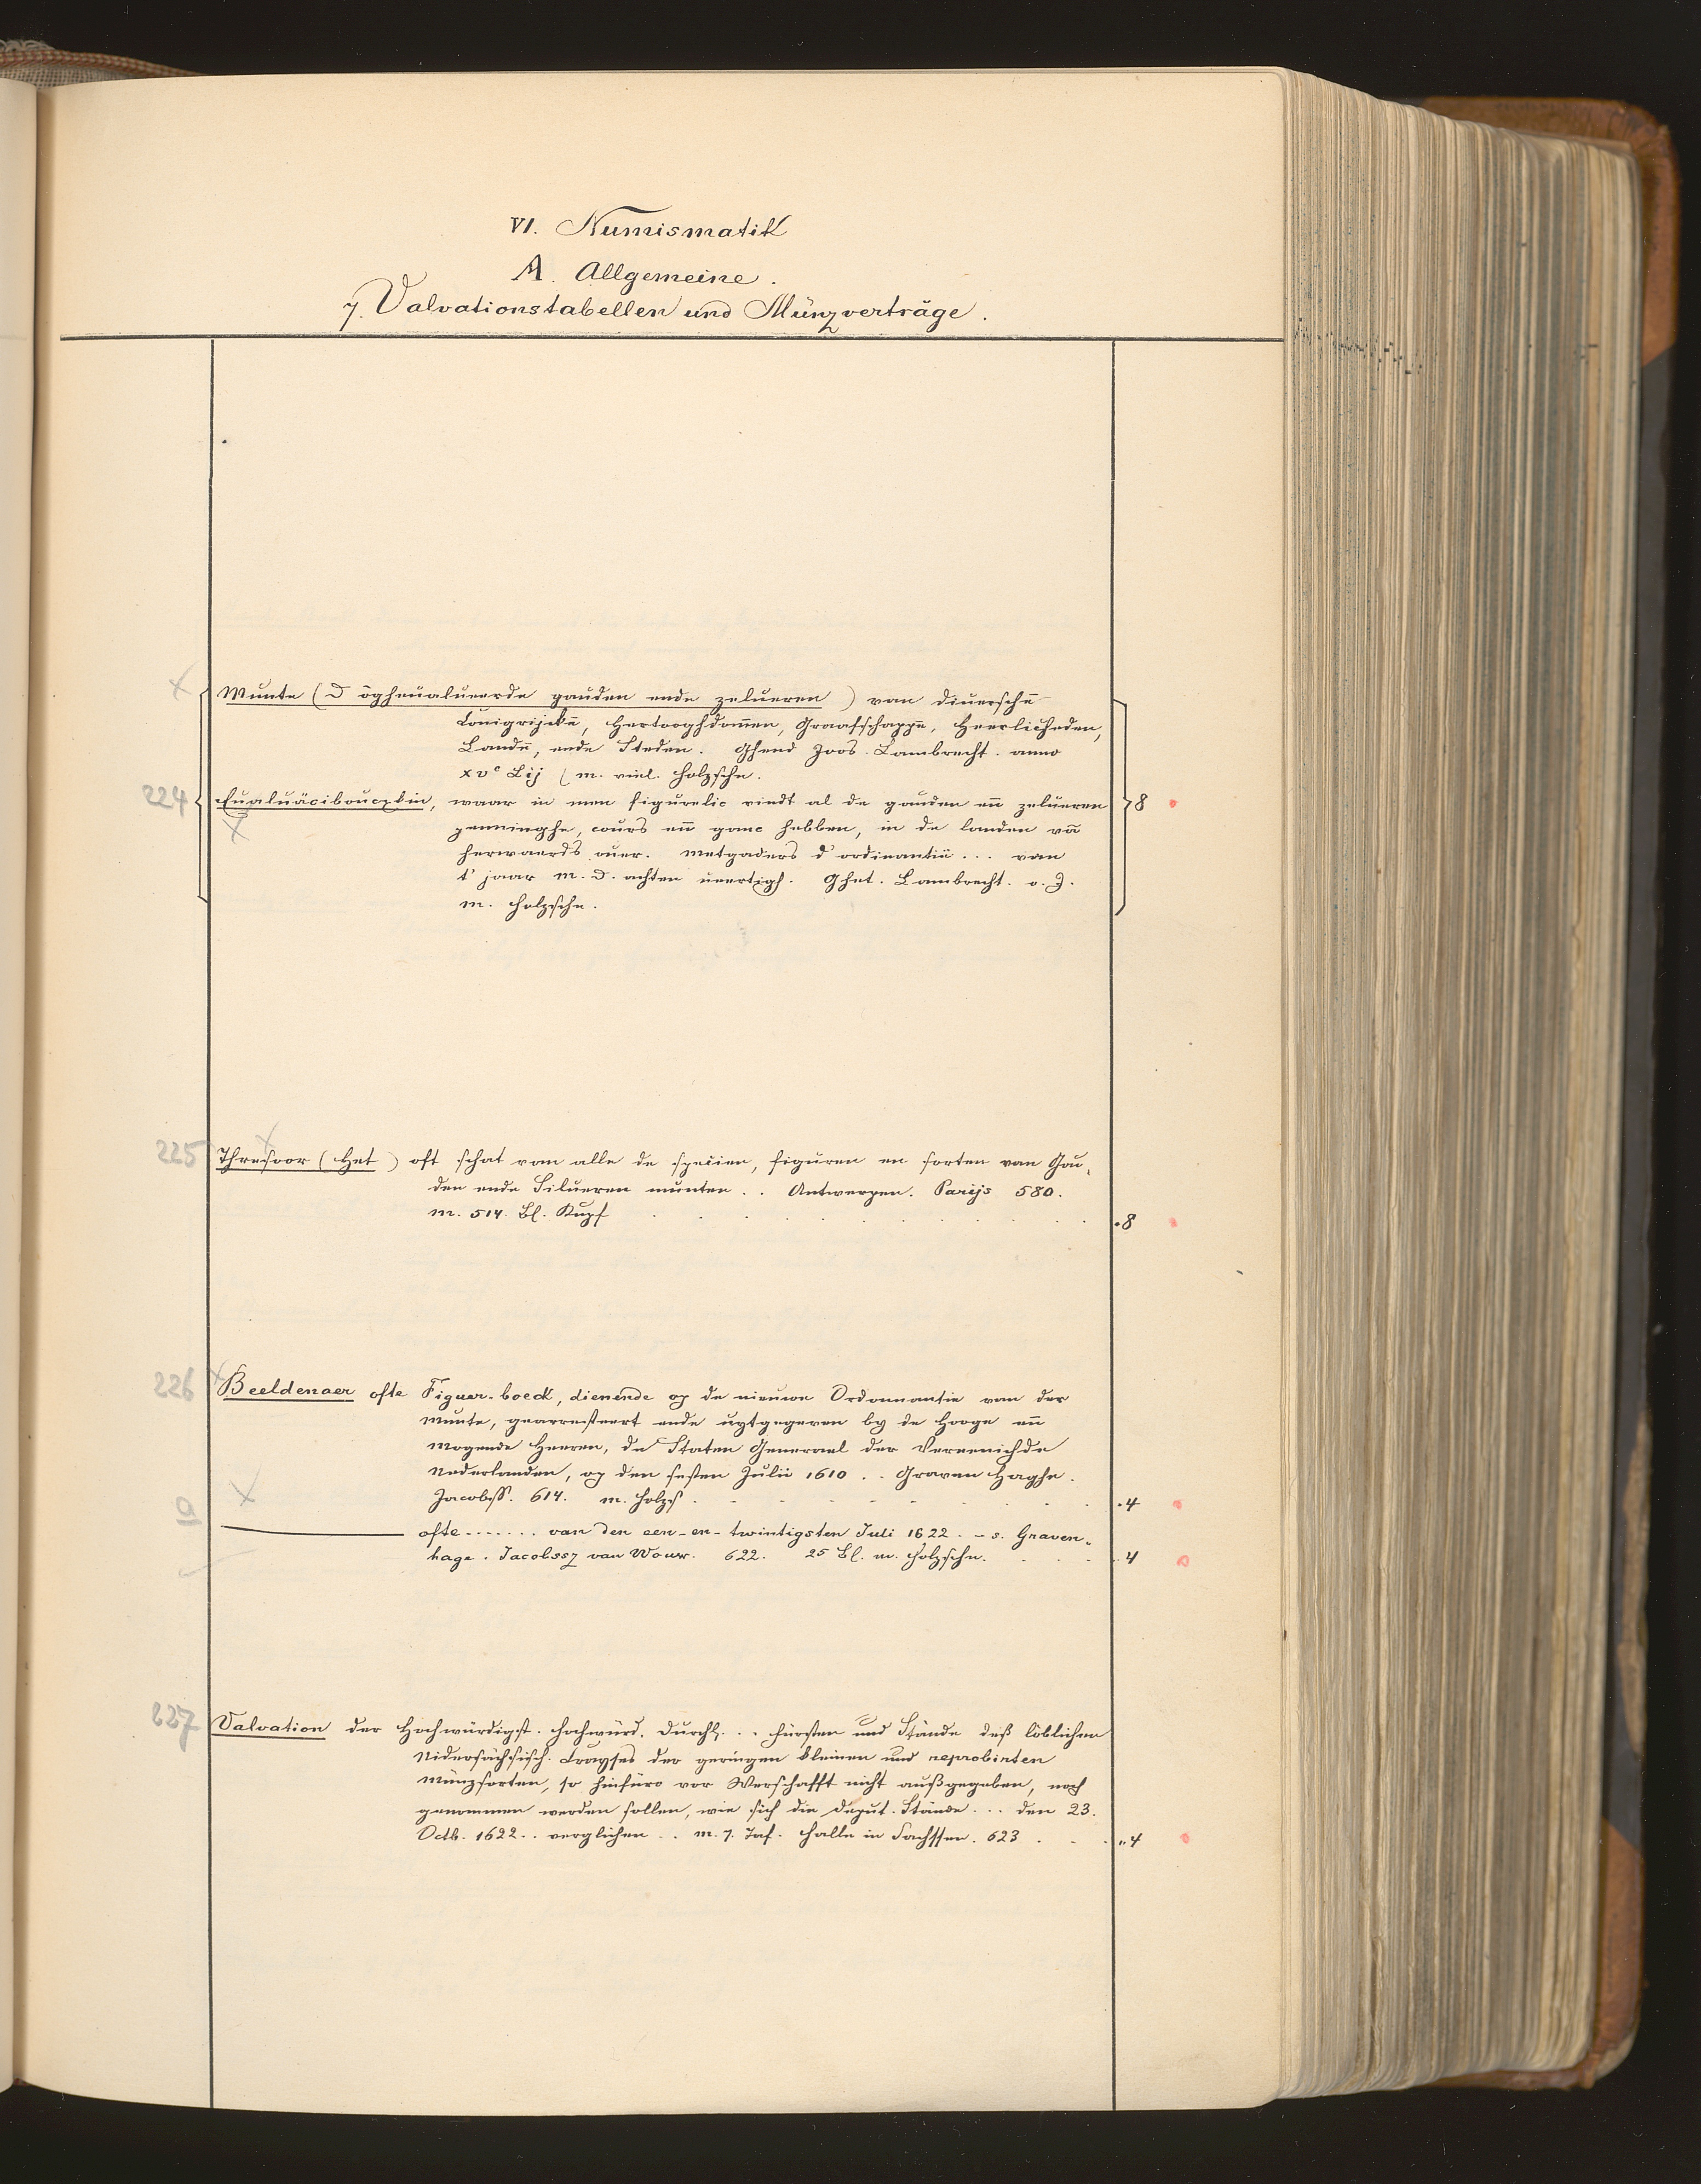 VI. Numismatik
A. Allgemeine.
7. Valvationstabellen und Münzverträge.
Munte (D'ōgheualueerde gauden ende zelueren) van diuerschē
Conigrijckē, Hertooghdommen, Graafschappē, Heerlicheden,
Landē, ende Steden. Ghend Joos. Lambrecht. anno
xvᶜ Lij (m. viel. Holzschn.
224 Eualuäcibouczkin, waar in men figurelic vindt al de gauden eñ zelueren
penninghe, cours eñ ganc hebben, in de landen vā
herwaerds ouer. Metgaders d'ordinantiē ... van
t' jaar M. D. achten veertigh. Ghet. Lambrecht. o. J.
m. Holzschn.
8
225 Thresoor (Het) oft schat van alle de specien, figuren en sorten van Gou-
den ende Silueren munten .. Antwerpen. Parijs 580.
m. 514. Bl. Kupf . . . 8
226 Beeldenaer ofte Figuer-boeck, dienende op de nieuwe Ordonnantie van der
Munte, gearresteert ende uytgegeven by de Hooge eñ
Mogende Heeren, de Staten Generael der Vereenichde
Nederlanden, op den sesten Julii 1610 .. Graven Haghe.
Jacobsß. 614. m. Holzs . . . 4
a ——— ofte ....... van den een-en-twintigsten Juli 1622. – s. Graven-
hage. Jacobssz van Wouw. 622. 25 Bl. m. Holzschn. . . . 4
227 Valvation der Hochwürdigst. Hochwürd. Durchl. ... Fürsten und Stände deß löblichen
Nidersächsisch. Crayses der geringen kleinen und reprobirten
Münzsorten, so hinfüro vor Werschafft nicht außgegeben, noch
genommen werden sollen, wie sich die Deput. Stände ... den 23.
Octb. 1622 .. verglichen .. m. 7. Taf. Halle in Sachssen. 623 . . . 4